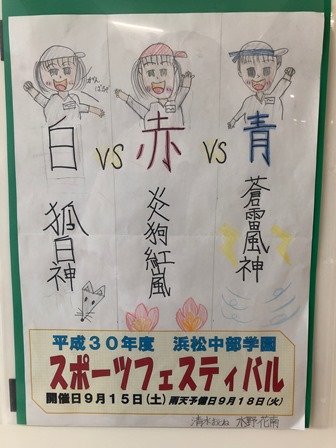 がんばるぞ
白 VS 赤 VS 青
狐白神
炎狗紅嵐
蒼雷風神
平成30年度 浜松中部学園
スポーツフェスティバル
開催日9月15日(土) 雨天予備日9月18日(火)
清水おとね 水野花南